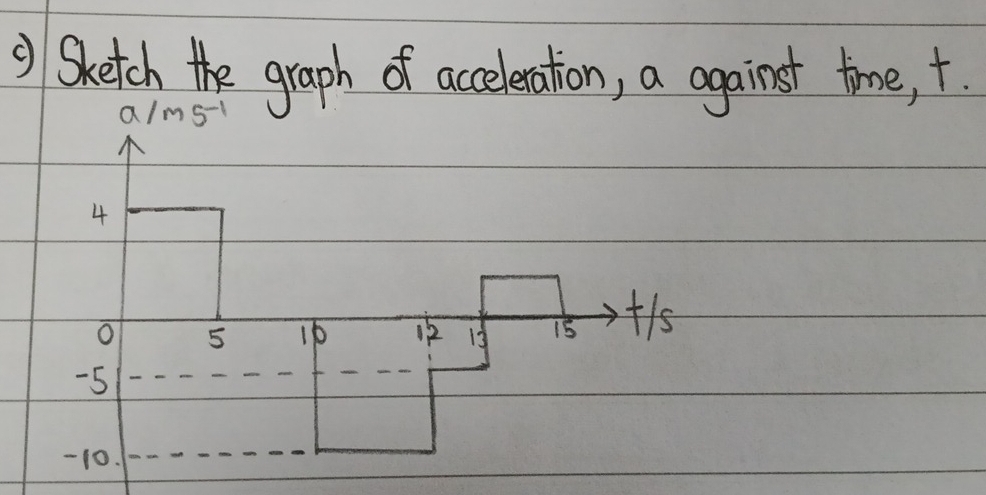 c) Sketch the graph of acceleration, a against time, t.
a/ms⁻¹
4
0 5 10 12 13 15 t/s
-5
-10